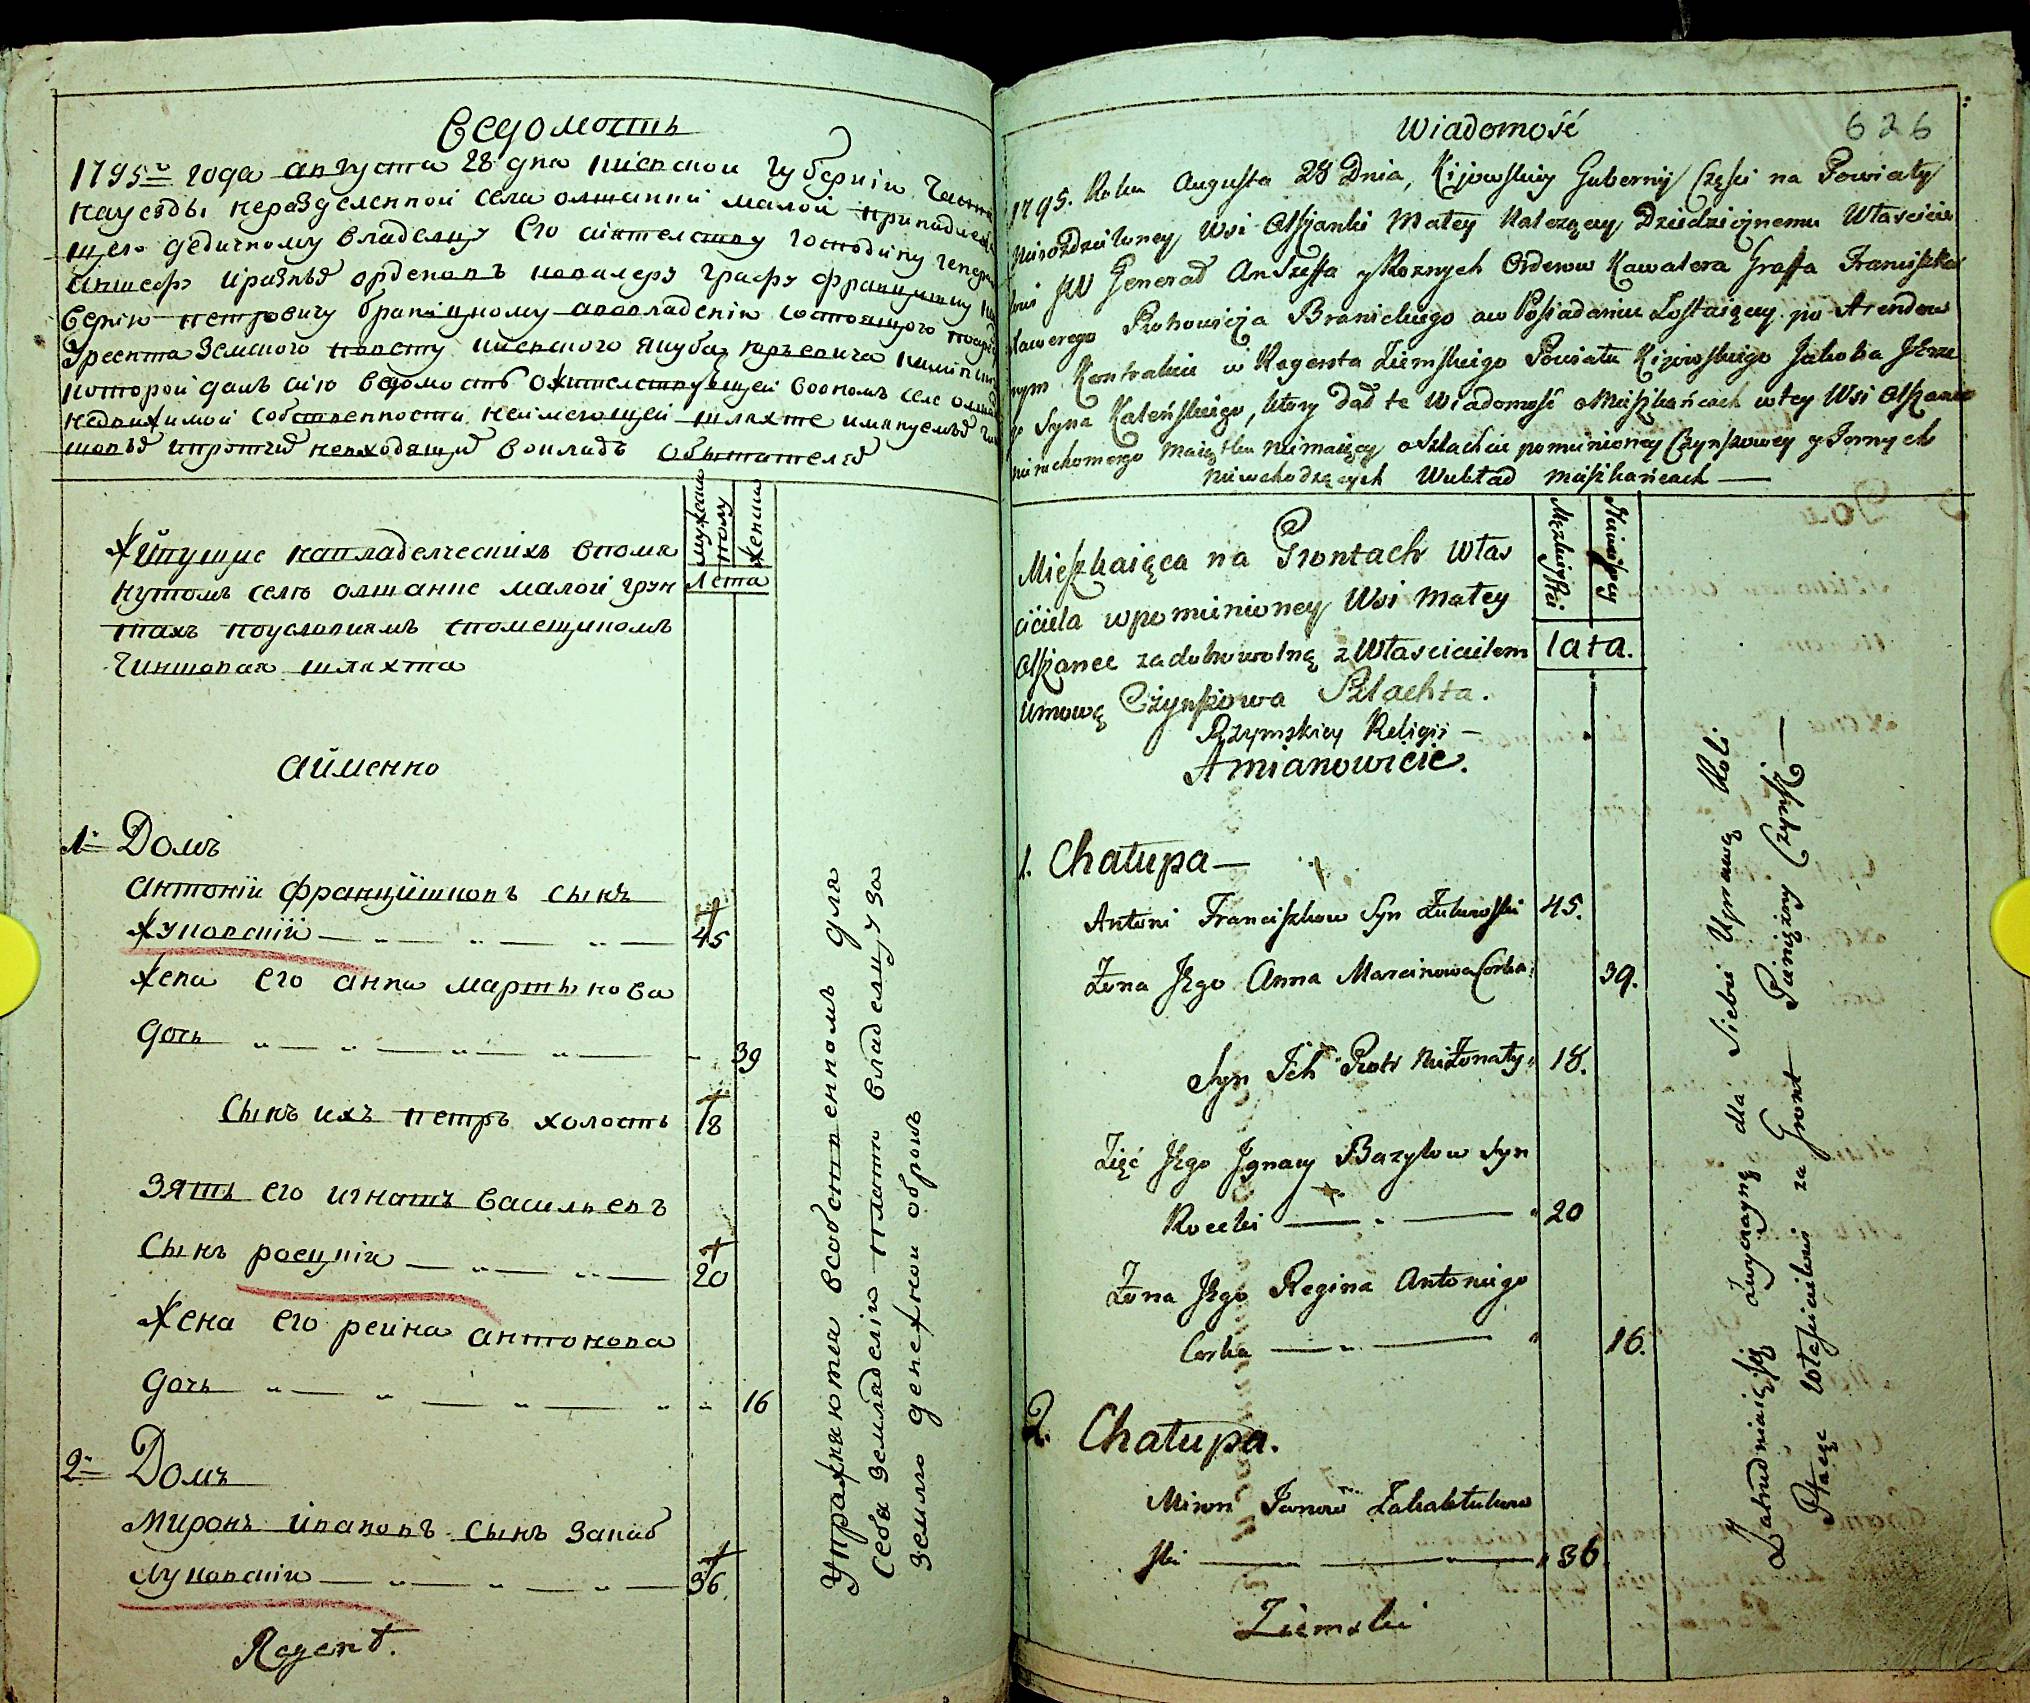 Ведомость
1795го года августа 28 дня киевской губернiи части
науезды неразделенной села олшанки малой принадлежа
щего дедичному владелцу Его сіятелству господину генералъ
аншефу иразныхъ орденовъ кавалеру графу францишку
Ксверію петровичу браницкому авовладенiи состоящого
Уреента земского повету киевского якуба юрьевича
которой далъ сiю ведомость ожителствующей воономъ селе олшан
недвижимой собственности неимеющей шляхте имянуемыя чин
шовыя ипротчия невходящия вокладъ обытателяхъ
живущие навладелческихъ впомя
нутомъ селе олшанке малой грун
тахъ поусловиямъ спомещикомъ
чиншовая шляхта
мужеска
полу
женска
Лета
аименно
1е Домъ
антонiи францишковъ сынъ
жуковскiй 45
жена его анна мартынова
дочь 39
сынъ ихъ петръ холостъ 18
зять его игнатъ васильевъ
сынъ роецкiи 20
жена его реина антонова
дочь 16
2е Домъ
миронъ ивановъ сынъ закаб
луковскiи 36
Regent.
Упражняются всобственномъ для
себя земледелiи платя владелцу за
землю денежнои оброкъ
626
Wiadomość
1795. Roku Augusta 28 Dnia, Kijowskiey Guberniy Części na Powiaty
nierozdzieloney Wsi Olszanki Małey Należącey Dziedzicznemu Właścicie
lowi JW Generał Anszeffa y Roznych Orderow Kawalera Graffa Franciszka
Xawerego Piotrowicza Branickiego aw Posiadaniu Zostaiącey po Arendow
nym Kontrakcie w Regenta Ziemskiego Powiatu Kijowskiego Jakoba Jerze
go Syna Kaleńskiego, ktory dał te Wiadomość o Mieszkańcach w tey Wsi Olszance
nieruchomego Maiątku niemaiącey o Szlachcie pomienioney Czynszowey y Innych
niewchodzących Wukład mieszkańcach
Mieszkaiąca na Grontach Włas
ciciela wpomienioney Wsi Małey
Olszance zadobrowolną z Właścicielem
Umową Czynszowa Szlachta.
Rzymskiey Religii
Amianowicie.
Męzkieypłci
Niewieściey
lata.
1. Chałupa
Antoni Franciszkow Syn Żukowski 45.
Żona Jego Anna Marcinowa Corka 39.
Syn Ich Piotr nieżonaty 18.
Zięć Jego Jgnacy Bazylow Syn
Roecki 20
Żona Jego Regina Antoniego
Corka 16.
2. Chałupa.
Miron Janow Zakabłukow
ski 36
Ziemski
Zatrudniaią się zwyczayną dla Siebie Uprawą Roli
Płacąc Właścicielowi za Gront Pieniężny Czynsz